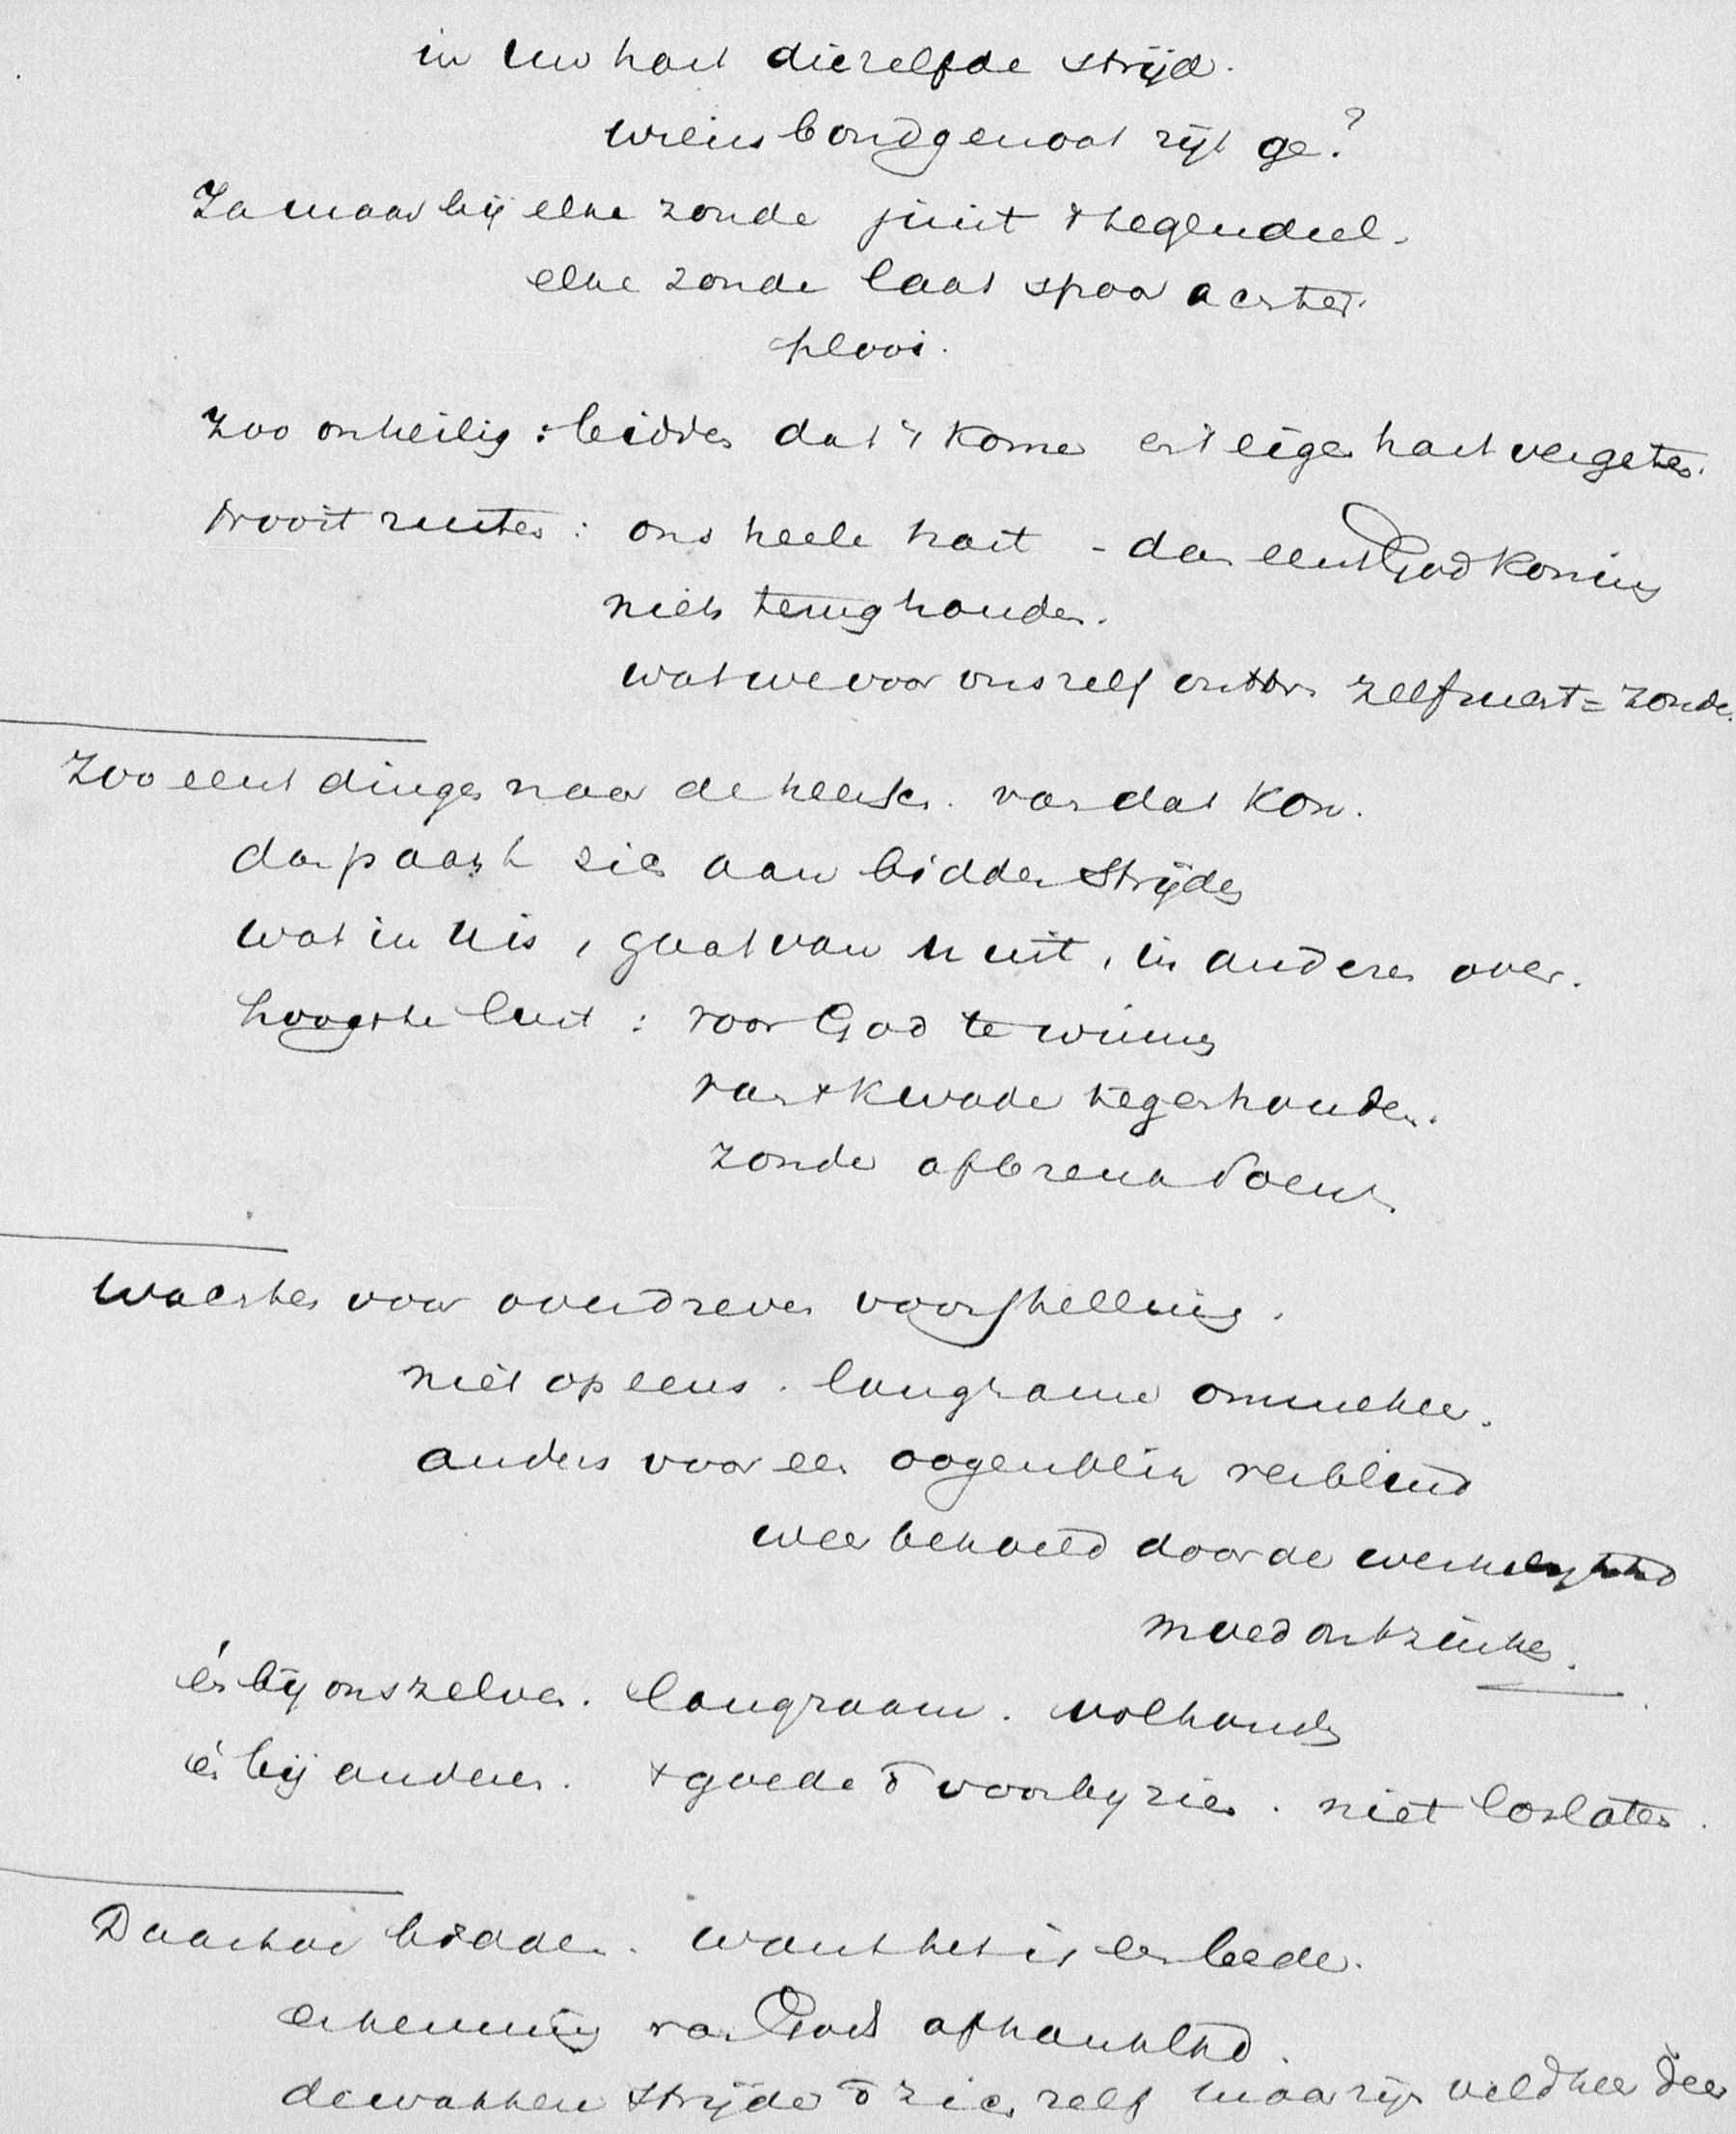 in uw hart diezelfde strijd.
wiens bondgenoot zijt ge?
Ja maar bij elke zonde juist 't tegendeel.
elke zonde laat spoor achter.
plooi.
Zoo onheilig: bidden dat 't kome en 't eigen hart vergeten.
nooit rusten: ons heele hart - dan eerst God Koning
niets terughouden.
wat we voor onszelf zelfzucht = zonde.
Zoo eerst dingen naar de van dat Kon.
dan paart zich aan bidden strijden
wat in u is, gaat van u uit, in anderen over.
hoogste lust: voor God te winnen
van 't kwade tegenhouden.
zonde afbreuk doen.
Wachten voor overdreven voorstelling.
niet opeens. langzame ommekeer.
anders voor een oogenblik verblind
weer door de werkelijkheid
moed ontzinken.
én bij onszelven. langzaam. volhouden
én bij anderen. 't goede voorbijzien. niet loslaten.
Daartoe bidden. want het is een bede.
erkenning van Gods
de wakkere strijder zich zelf maar zijn veldheer